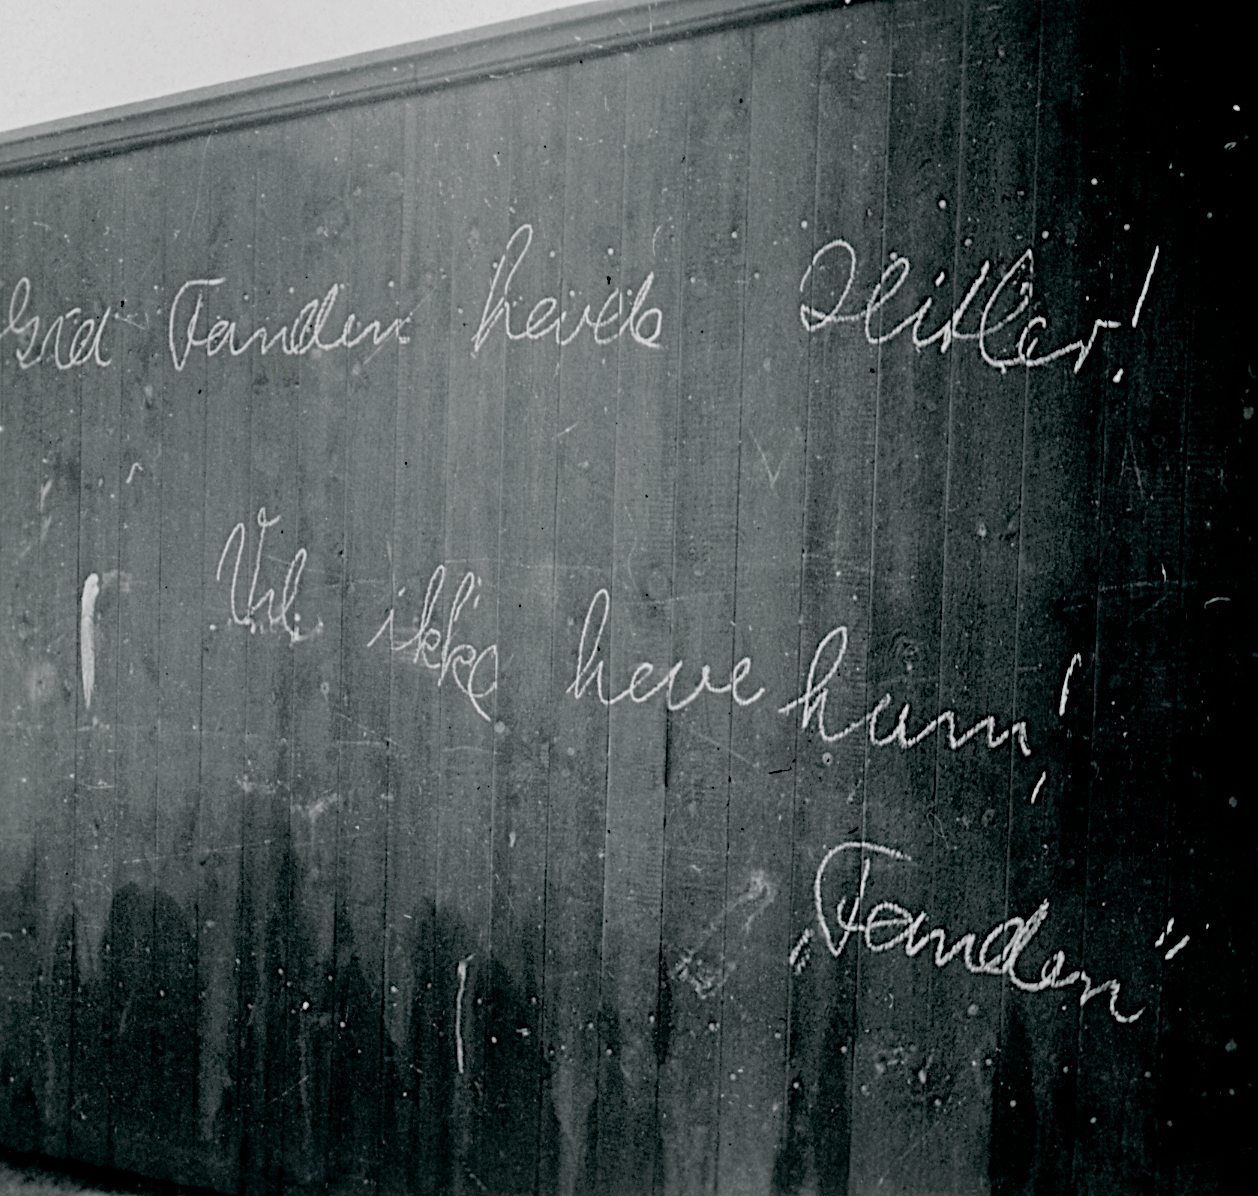 Gid Fanden havde Hitler!
Vil ikke have ham!
„Fanden”